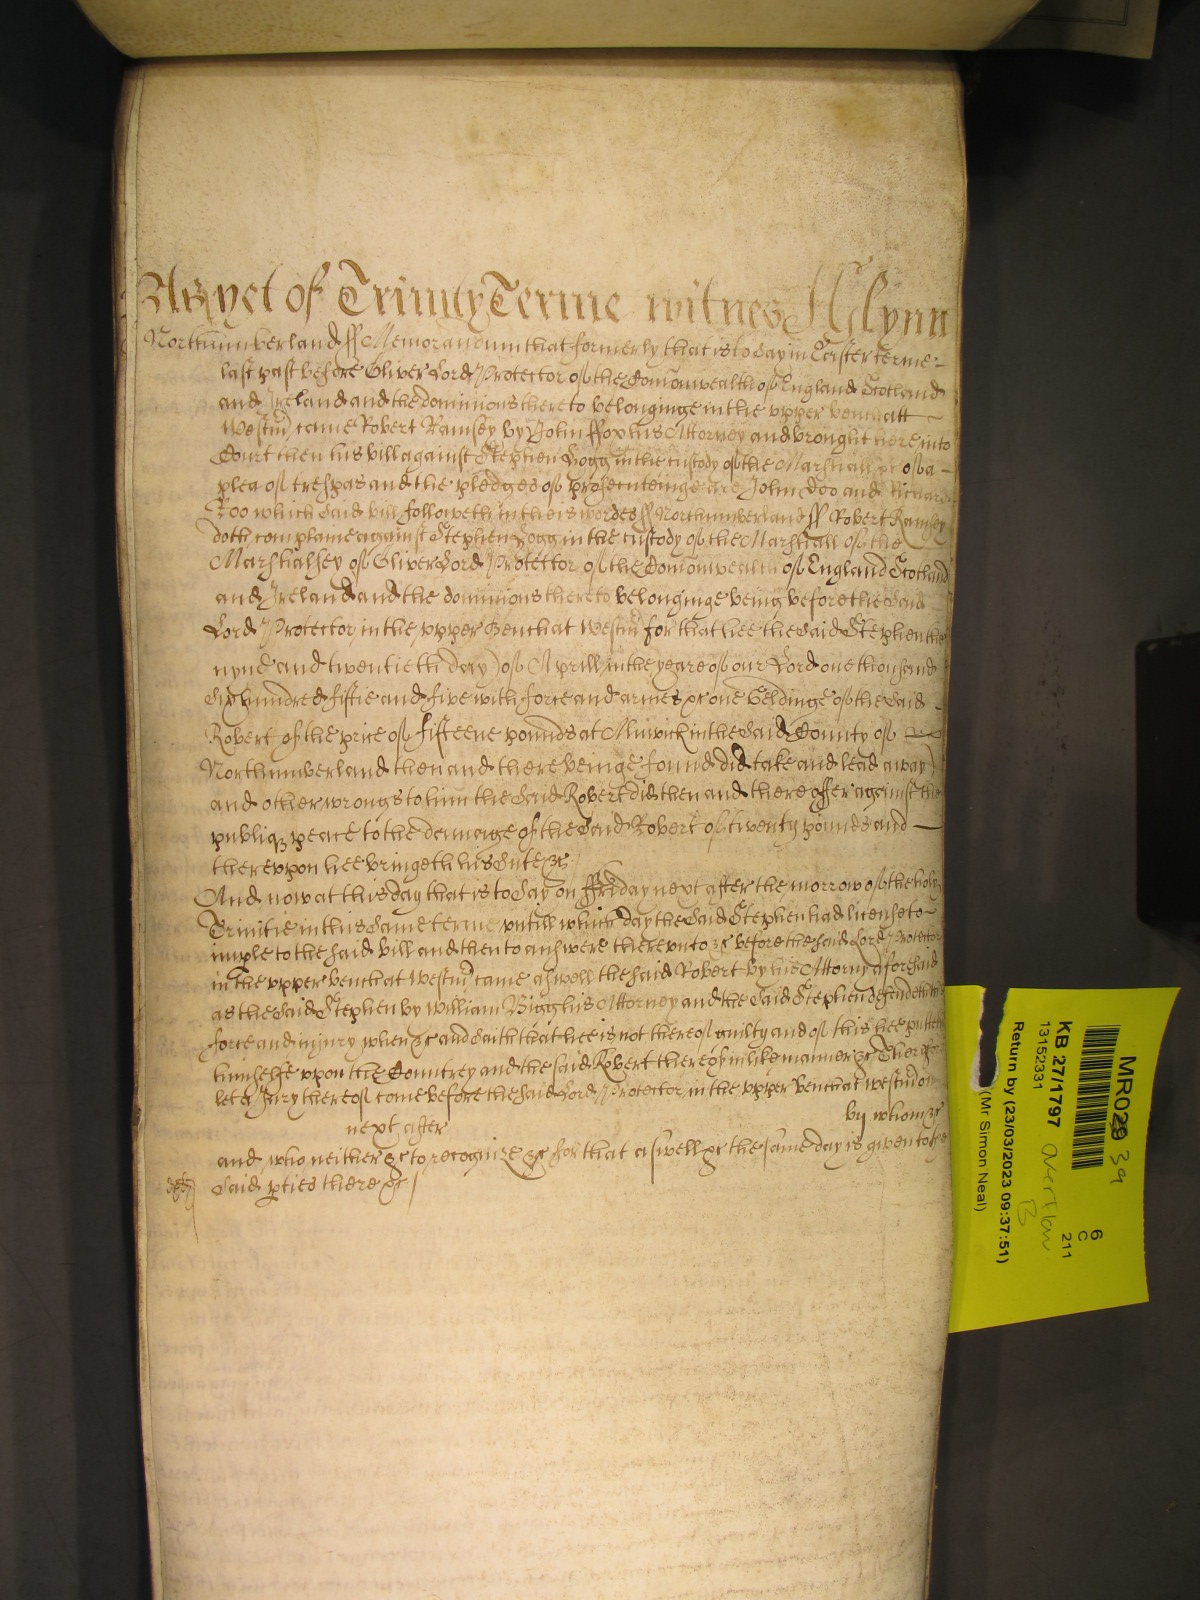 As yet of Trinity Terme witnes H Glynn
Northumberland ss Memorandum that formerly that is to say in Easter terme
last past before Oliver Lord Protector of the Comonwealth of England Scotland
and Ireland and the dominions thereto belonginge in the upper bench att
Westm̃ came Robert Ramsey by John Ffox his Attorney and brought here into
Court then his bill against Stephen Hogg in the custody of the Marshall &c of a
plea of trespas and the pledges of prosecuteinge are John Doo and Richard
Roo which said bill followeth in theis wordes ss Northumberland ss Robert Ramsey
doth complaine against Stephen Hogg in the custody of the Marshall of the
Marshalsey of Oliver Lord Protector of the Comonwealth of England Scotland
and Ireland and the dominions thereto belonginge being before the said
Lord Protector in the upper bench at Westm̃ for that hee the said Stephen the
nyne and twentieth day of Aprill in the yeare of our Lord one thousand
six hundred fiftie and five with force and armes &c one Geldinge of the said
Robert of the price of fifteene pounds at Alnwick in the said County of
Northumberland then and there beinge found did take and lead away
and other wrongs to him the said Robert did then and there offer against the
publiq peace to the damage of the said Robert of twenty pounds and
thereupon hee bringeth his sute &c
And now at this day that is to say on Ffriday next after the morrow of the holy
Trinitie in this same terme untill which day the said Stephen had license to
imple to the said bill and then to answere thereunto &c before the said Lord Protector
in the upper bench at Westm̃ came aswell the said Robert by his Attorny aforesaid
as the said Stephen by William Bigg his Attorney and the said Stephen defendeth the
force and injury when &c and saith that hee is not thereof guilty and of this hee putteth
himselfe upon the Countrey and the said Robert thereof in like manner &c Therefore
let a Jury thereof come before the said Lord Protector in the upper bench at westm̃ on
next after by whom &c
and who neither &c to recognize &c for that aswell &c the same day is given to the
said pties there &c
MR028 39
KB 27/1797
13152331
Overflow
B
6
C
211
Return by (23/03/2023 09:37:51)
(Mr Simon Neal)